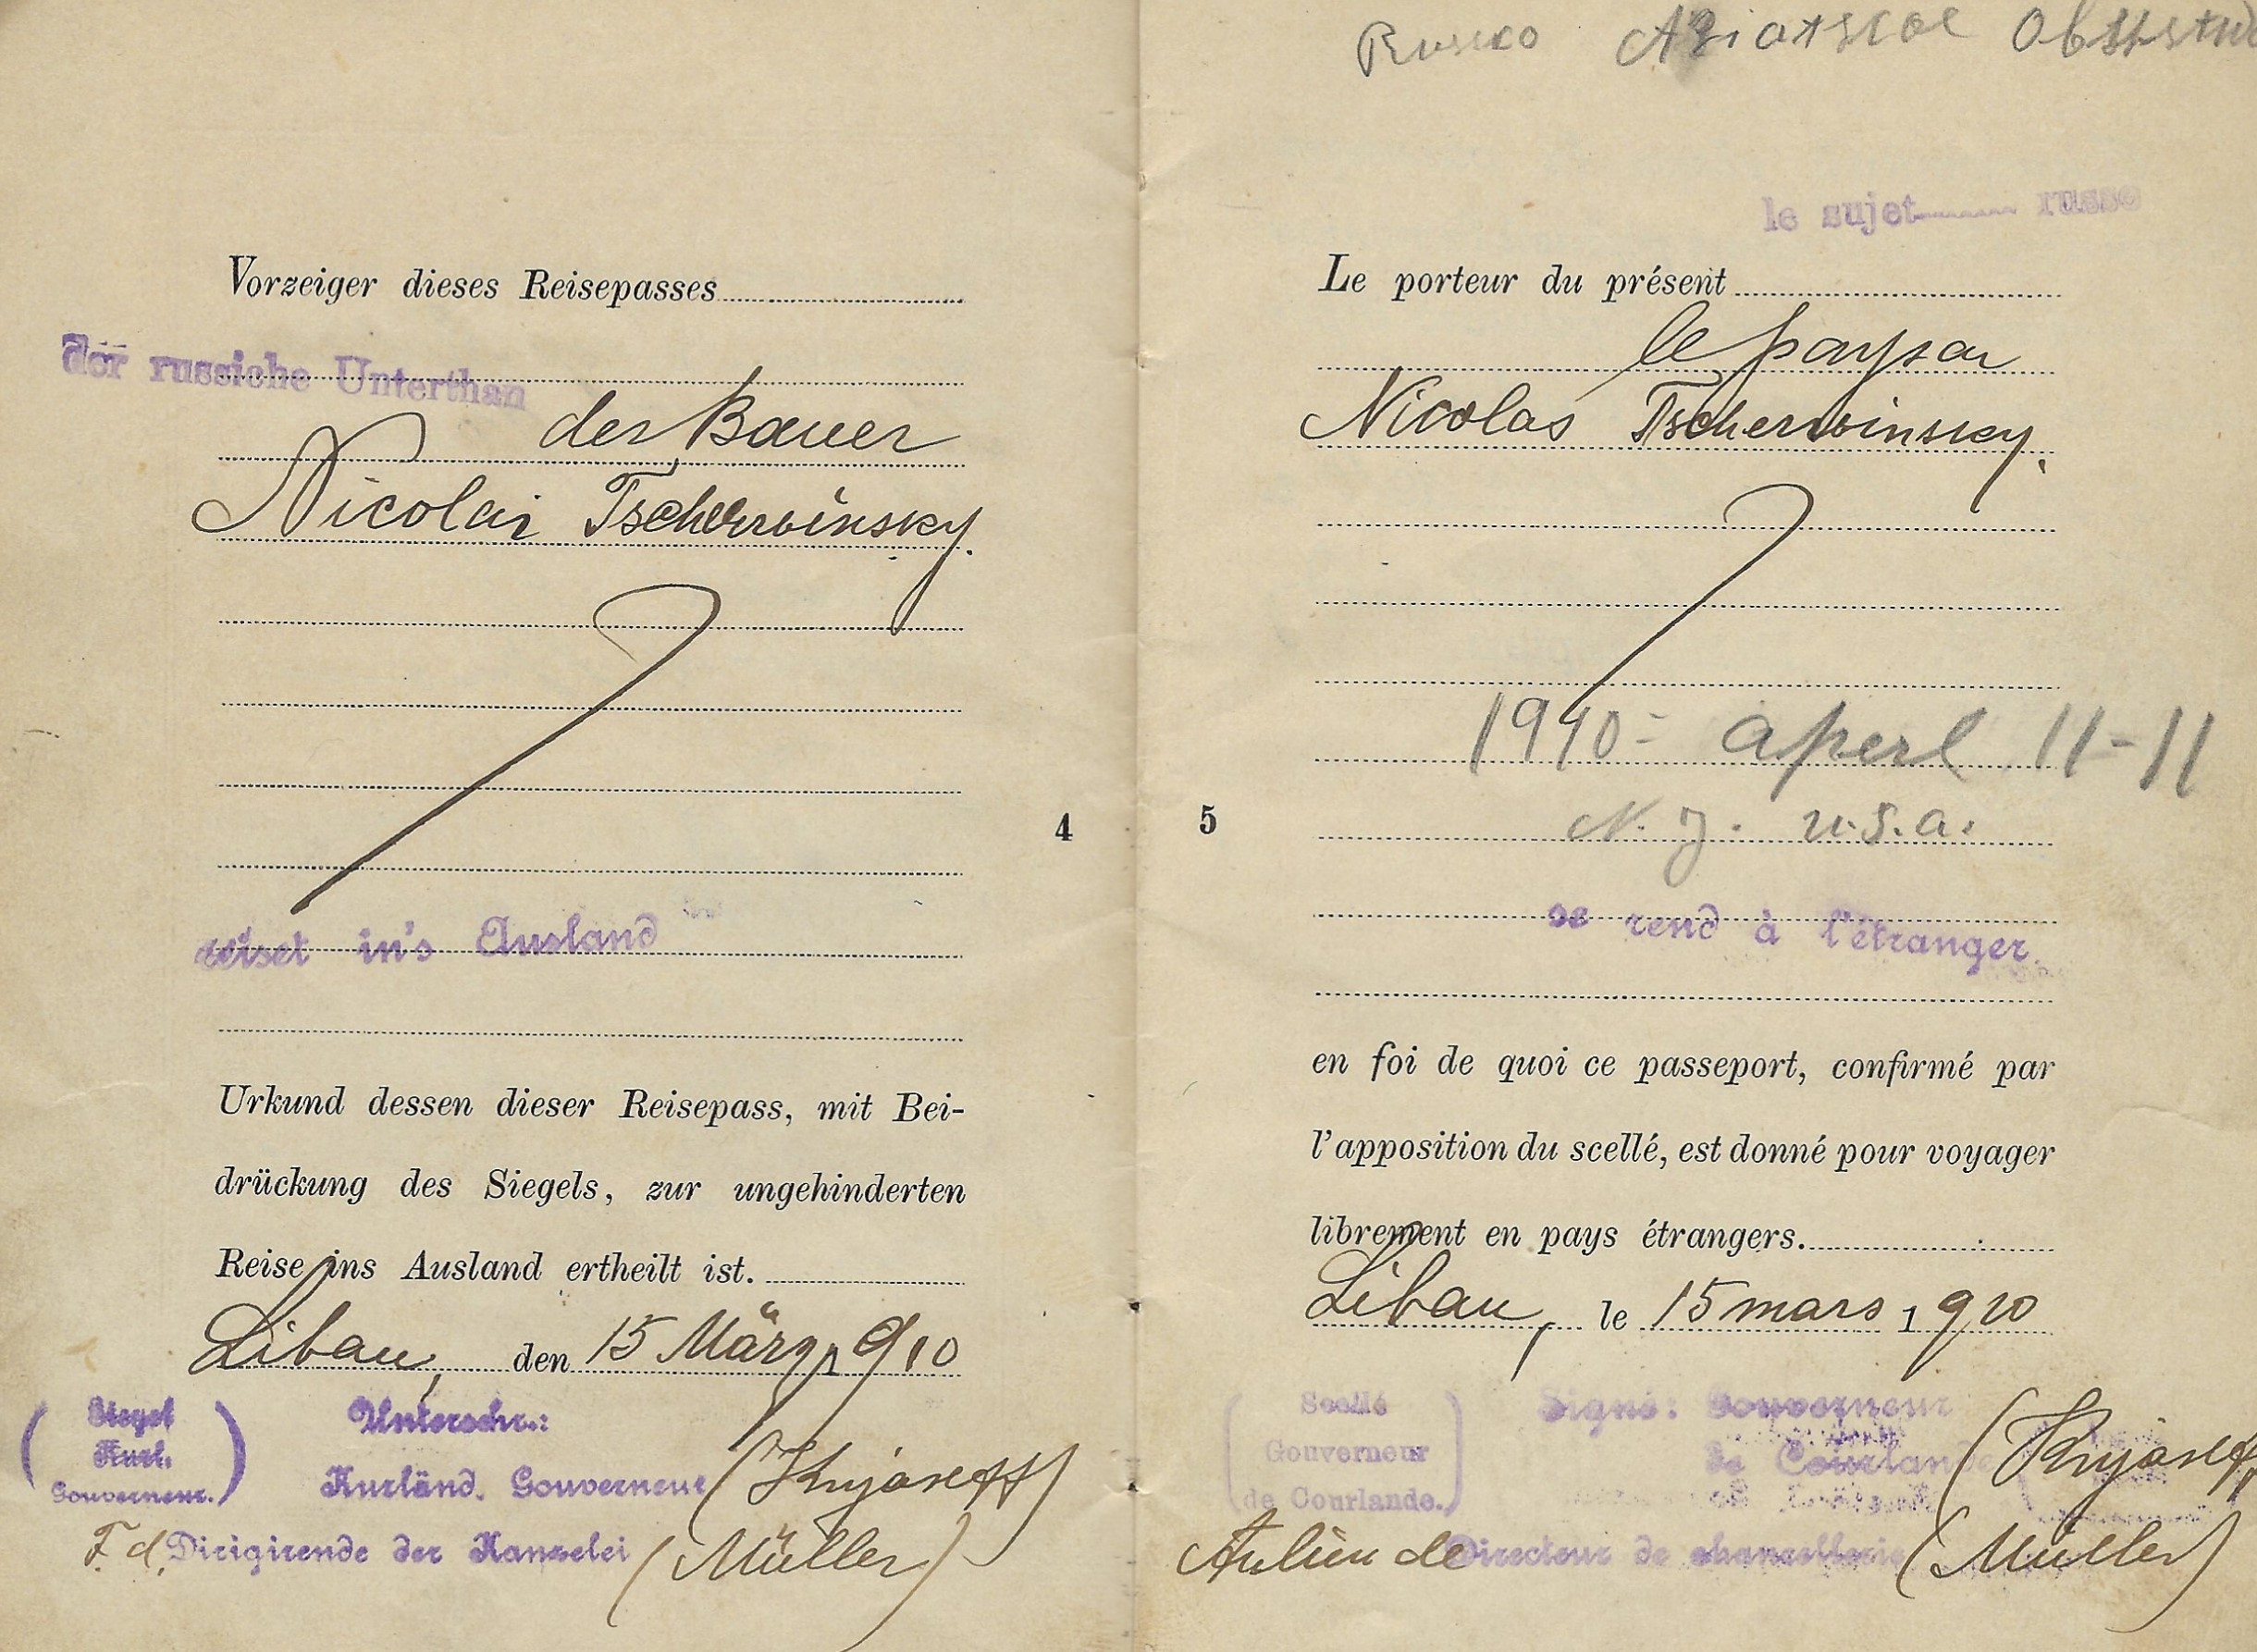 Vorzeiger dieses Reisepasses
der russiche Unterthan
der Bauer
Nicolai Tscherwinsky.
reiset in's Ausland
4
Urkund dessen dieser Reisepass, mit Bei-
drückung des Siegels, zur ungehinderten
Reise ins Ausland ertheilt ist.
Libau, den 15 März 1910
(Siegel
Kurl.
Gouverneur.)
Unterschr.:
Kurländ. Gouverneur (Knjaseff)
F. d. Dirigirende der Kanzelei (Müller)
Russko Asiatskoe
le sujet russe
Le porteur du présent
le paysan
Nicolas Tscherwinsky.
1910 = aperl 11-11
N. J. U.S.A.
5
se rend à l'étranger
en foi de quoi ce passeport, confirmé par
l'apposition du scellé, est donné pour voyager
librement en pays étrangers.
Libau, le 15 mars 1910
(Scellé
Gouverneur
de Courlande.)
Signé: Gouverneur
de Courlande (Knjaseff)
Au lieu de Directeur de chancellerie (Müller)